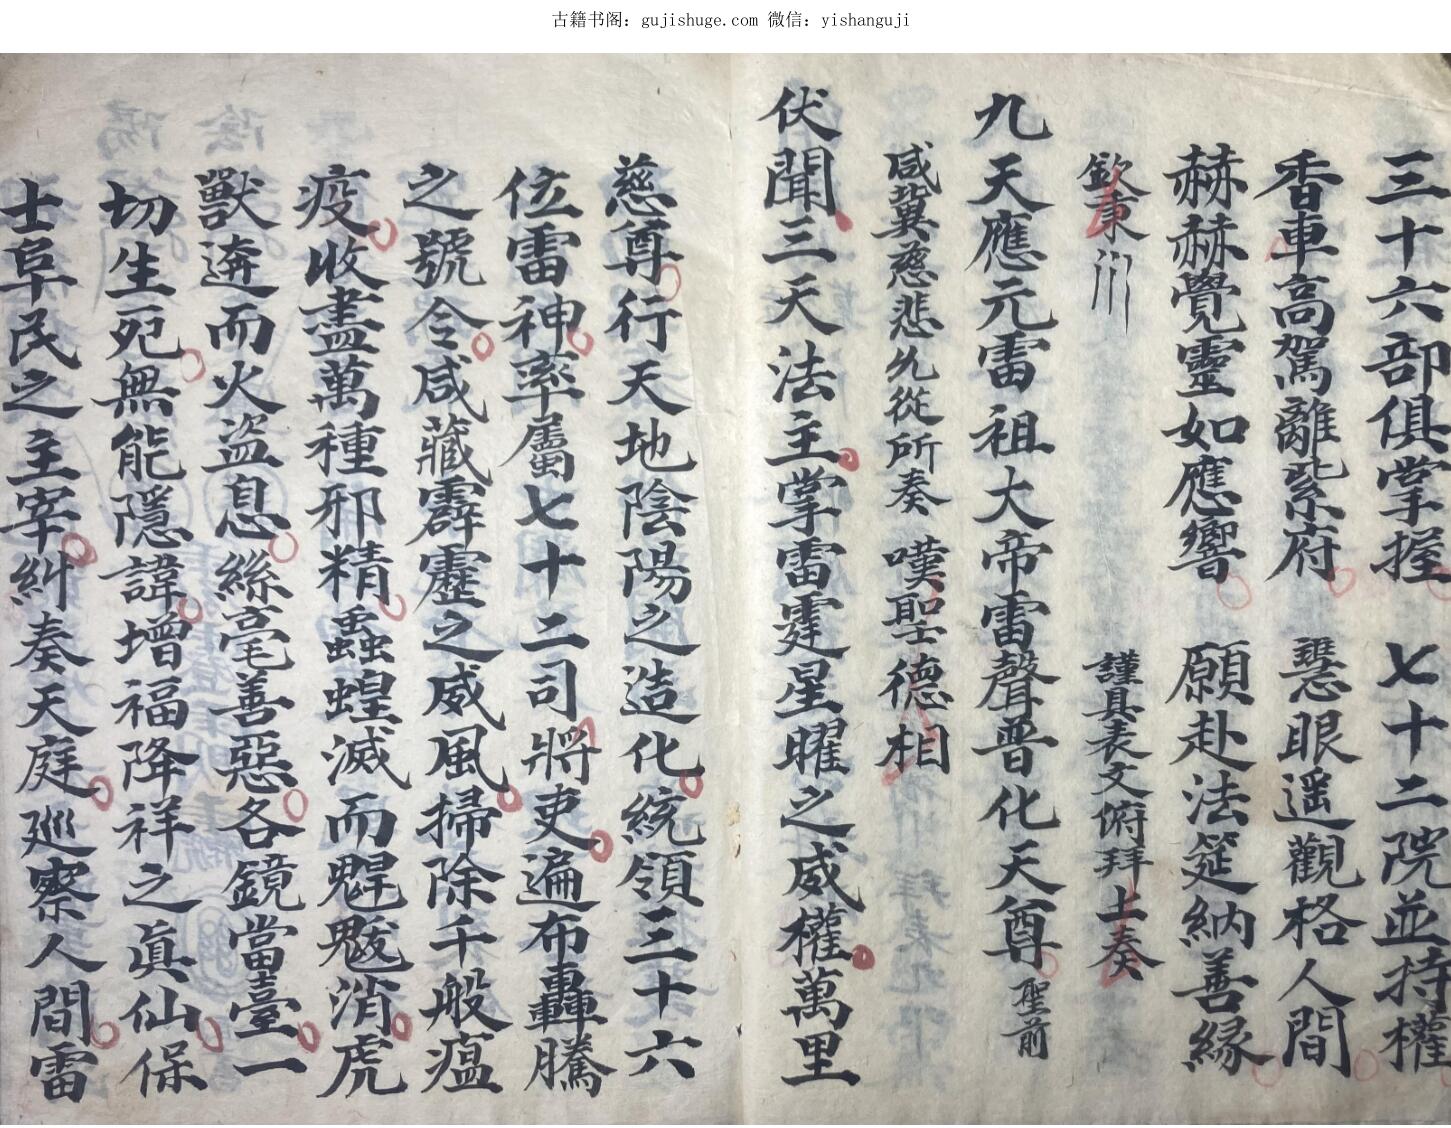 古籍书阁：gujishuge.com 微信：yishanguji
三十六部俱掌握 七十二院並持權
香車高駕離紫府 慧眼遥觀格人間
赫赫覺靈如應響 願赴法筵納善緣
欽奉 謹具表文俯拜上奏
九天應元雷祖大帝雷聲普化天尊 聖前
咸冀慈悲允從所奏 嘆聖德相
伏聞三天法主掌雷霆星曜之威權萬里
慈尊行天地陰陽之造化統領三十六
位雷神率屬七十二司將吏遍布轟騰
之號令咸藏霹靂之威風掃除千般瘟
疫收盡萬種邪精蟲蝗滅而魈魃消虎
獸迯而火盗息絲毫善惡各鏡當臺一
切生死無能隱諱增福降祥之眞仙保
士阜民之主宰糾奏天庭巡察人間雷